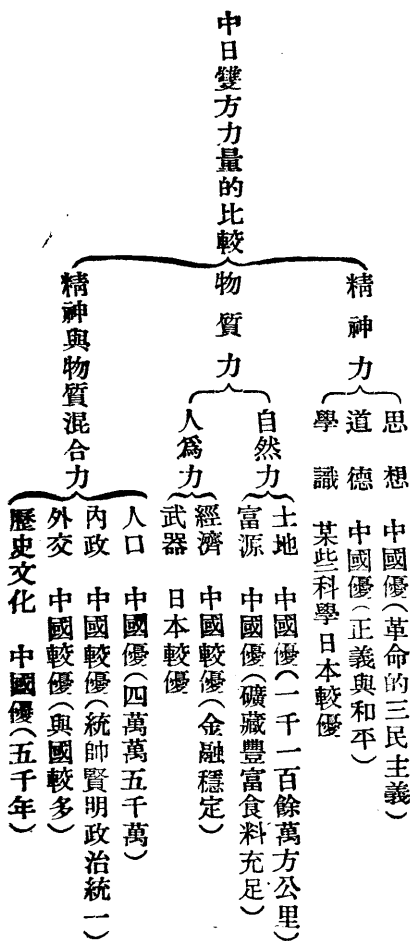 中日雙方力量的比較
精神力
思想　中國優(革命的三民主義)
道德　中國優(正義與和平)
學識　某些科學日本較優
物質力
自然力
土地　中國優(一千一百餘萬方公里)
富源　中國優(礦藏豐富食料充足)
人爲力
經濟　中國較優(金融穩定)
武器　日本較優
精神與物質混合力
人口　中國優(四萬萬五千萬)
內政　中國較優(統帥賢明政治統一)
外交　中國較優(與國較多)
歷史文化　中國優(五千年)